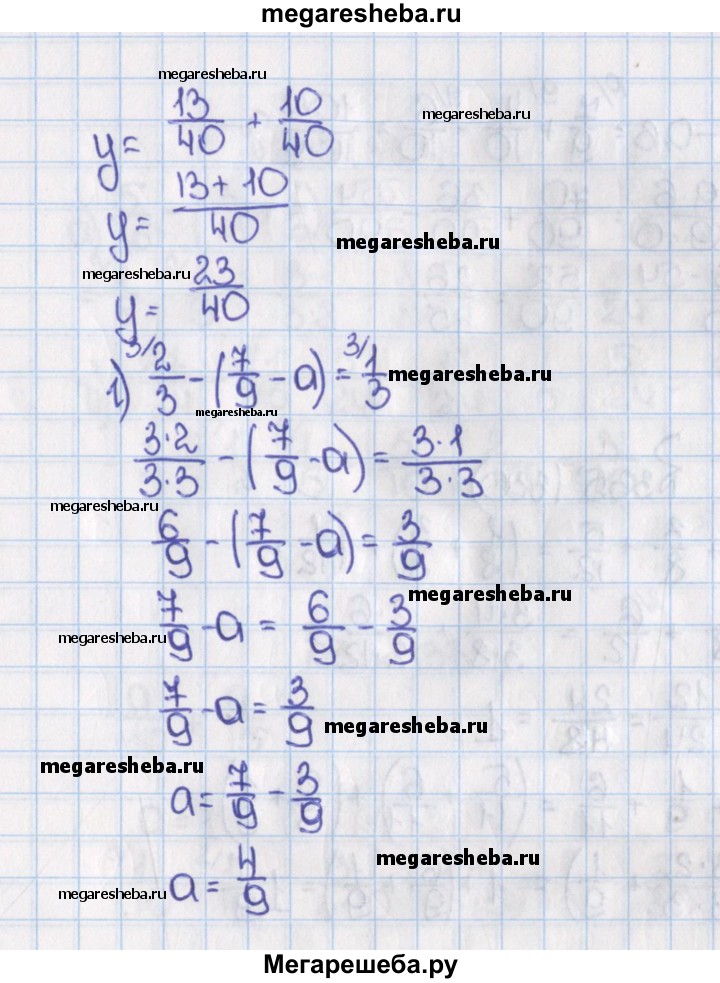 megaresheba.ru
megaresheba.ru
megaresheba.ru
y = 13/40 + 10/40
y = (13+10)/40
megaresheba.ru
megaresheba.ru
y = 23/40
1) 3/ 2/3 - (7/9 - a) = 3/ 1/3
megaresheba.ru
megaresheba.ru
3·2/3·3 - (7/9 - a) = 3·1/3·3
megaresheba.ru
6/9 - (7/9 - a) = 3/9
megaresheba.ru
7/9 - a = 6/9 - 3/9
megaresheba.ru
7/9 - a = 3/9
megaresheba.ru
megaresheba.ru
a = 7/9 - 3/9
megaresheba.ru
a = 4/9
megaresheba.ru
Мегарешеба.ру